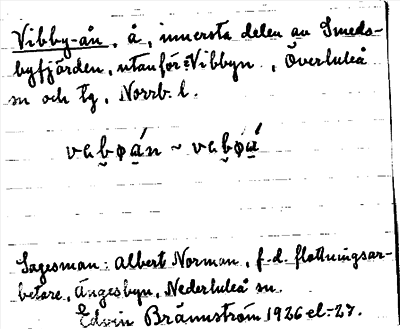 Vibby-ån, å, innersta delen av Smeds-
byfjärden, utanför Vibbyn, Överluleå
sn och tg, Norrb. l.
vɩb̬øá̲n ~ vɩb̬øá̲
Sagesman: Albert Norman, f.d. flottningsar-
betare, Ängesbyn, Nederluleå sn.
Edvin Brännström 1926 el. -27.